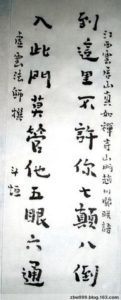 江西雲居山真如禪寺山門趙州關聯語
到這里不許你七顛八倒
入此門莫管他五眼六通
虛雲法師撰
zbw808.blog.163.com